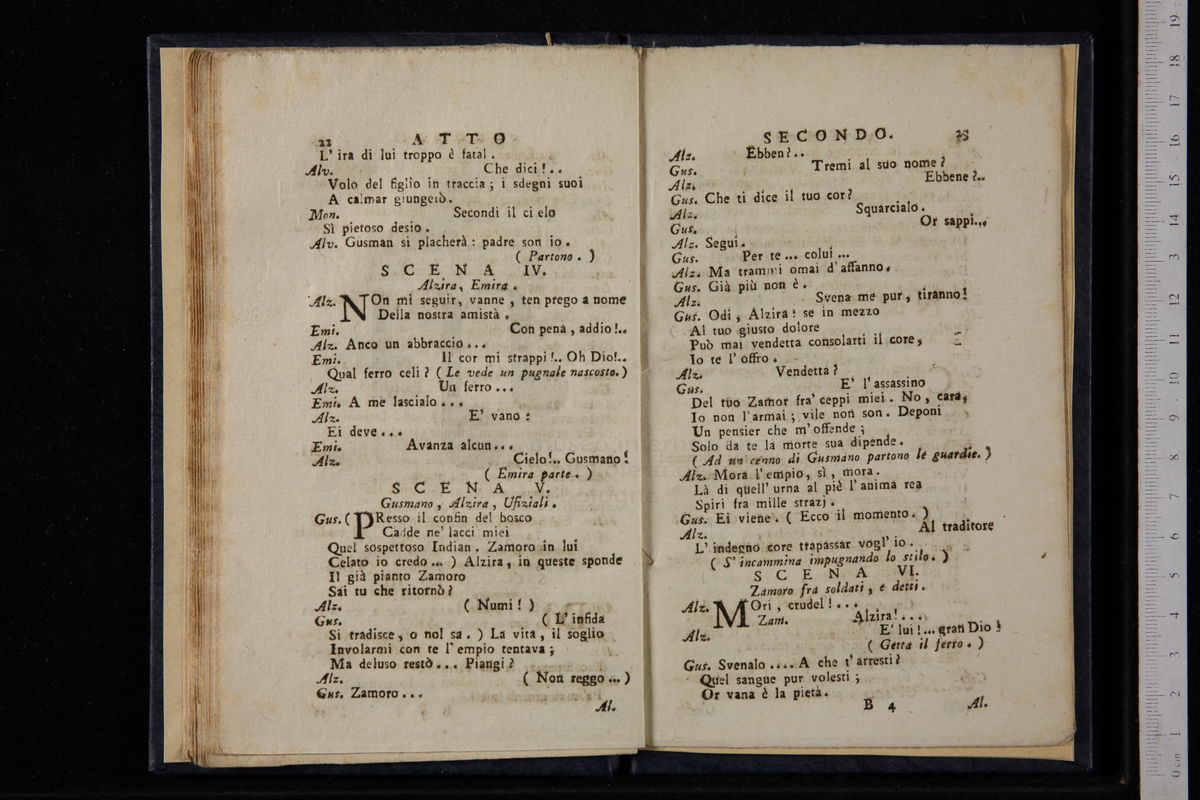 22 ATTO
L' ira di lui troppo è fatal .
Alv. Che dici !. .
Volo del figlio in traccia ; i sdegni suoi
A calmar giungerò.
Mon. Secondi il ci elo
Sì pietoso desio .
Alv. Gusman si placherà : padre son io .
( Partono . )
SCENA IV.
Alzira, Emira .
Alz. NOn mi seguir, vanne , ten prego a nome
Della nostra amistà .
Emi. Con pena , addio !..
Alz. Anco un abbraccio . . .
Emi. Il cor mi strappi !.. Oh Dio!..
Qual ferro celi ? ( Le vede un pugnale nascosto. )
Alz. Un ferro . . .
Emi. A me lascialo . . .
Alz. E' vano :
Ei deve . . .
Emi. Avanza alcun . . .
Alz. Cielo!.. Gusmano !
( Emira parte . )
SCENA V.
Gusmano , Alzira , Ufiziali .
Gus. ( PResso il confin del bosco
Cadde ne' lacci miei
Quel sospettoso Indian . Zamoro in lui
Celato io credo ... ) Alzira, in queste sponde
Il già pianto Zamoro
Sai tu che ritornò ?
Alz. ( Numi ! )
Gus. ( L' infida
Si tradisce , o nol sa . ) La vita , il soglio
Involarmi con te l' empio tentava ;
Ma deluso restò . . . Piangi ?
Alz. ( Non reggo ... )
Gus. Zamoro . . .
Al.
SECONDO. 23
Alz. Ebben ? . .
Gus. Tremi al suo nome ?
Alz. Ebbene ?..
Gus. Che ti dice il tuo cor ?
Alz. Squarcialo .
Gus. Or sappi...
Alz. Segui .
Gus. Per te ... colui ...
Alz. Ma trammi omai d' affanno .
Gus. Già più non è .
Alz. Svena me pur , tiranno !
Gus. Odi , Alzira ! se in mezzo
Al tuo giusto dolore
Può mai vendetta consolarti il core ,
Io te l' offro .
Alz. Vendetta ?
Gus. E' l' assassino
Del tuo Zamor fra' ceppi miei . No , cara,
Io non l' armai ; vile non son . Deponi
Un pensier che m' offende ;
Solo da te la morte sua dipende .
( Ad un cenno di Gusmano partono le guardie. )
Alz. Mora l' empio , sì , mora .
Là di quell' urna al piè l' anima rea
Spiri fra mille strazj .
Gus. Ei viene . ( Ecco il momento . )
Alz. Al traditore
L' indegno core trapassar vogl' io .
( S' incammina impugnando lo stilo . )
SCENA VI.
Zamoro fra soldati , e detti .
Alz. MOri , crudel ! . . .
Zam. Alzira! . . .
Alz. E' lui ! ... gran Dio !
( Getta il ferro . )
Gus. Svenalo .... A che t' arresti ?
Quel sangue pur volesti ;
Or vana è la pietà .
B 4 Al.